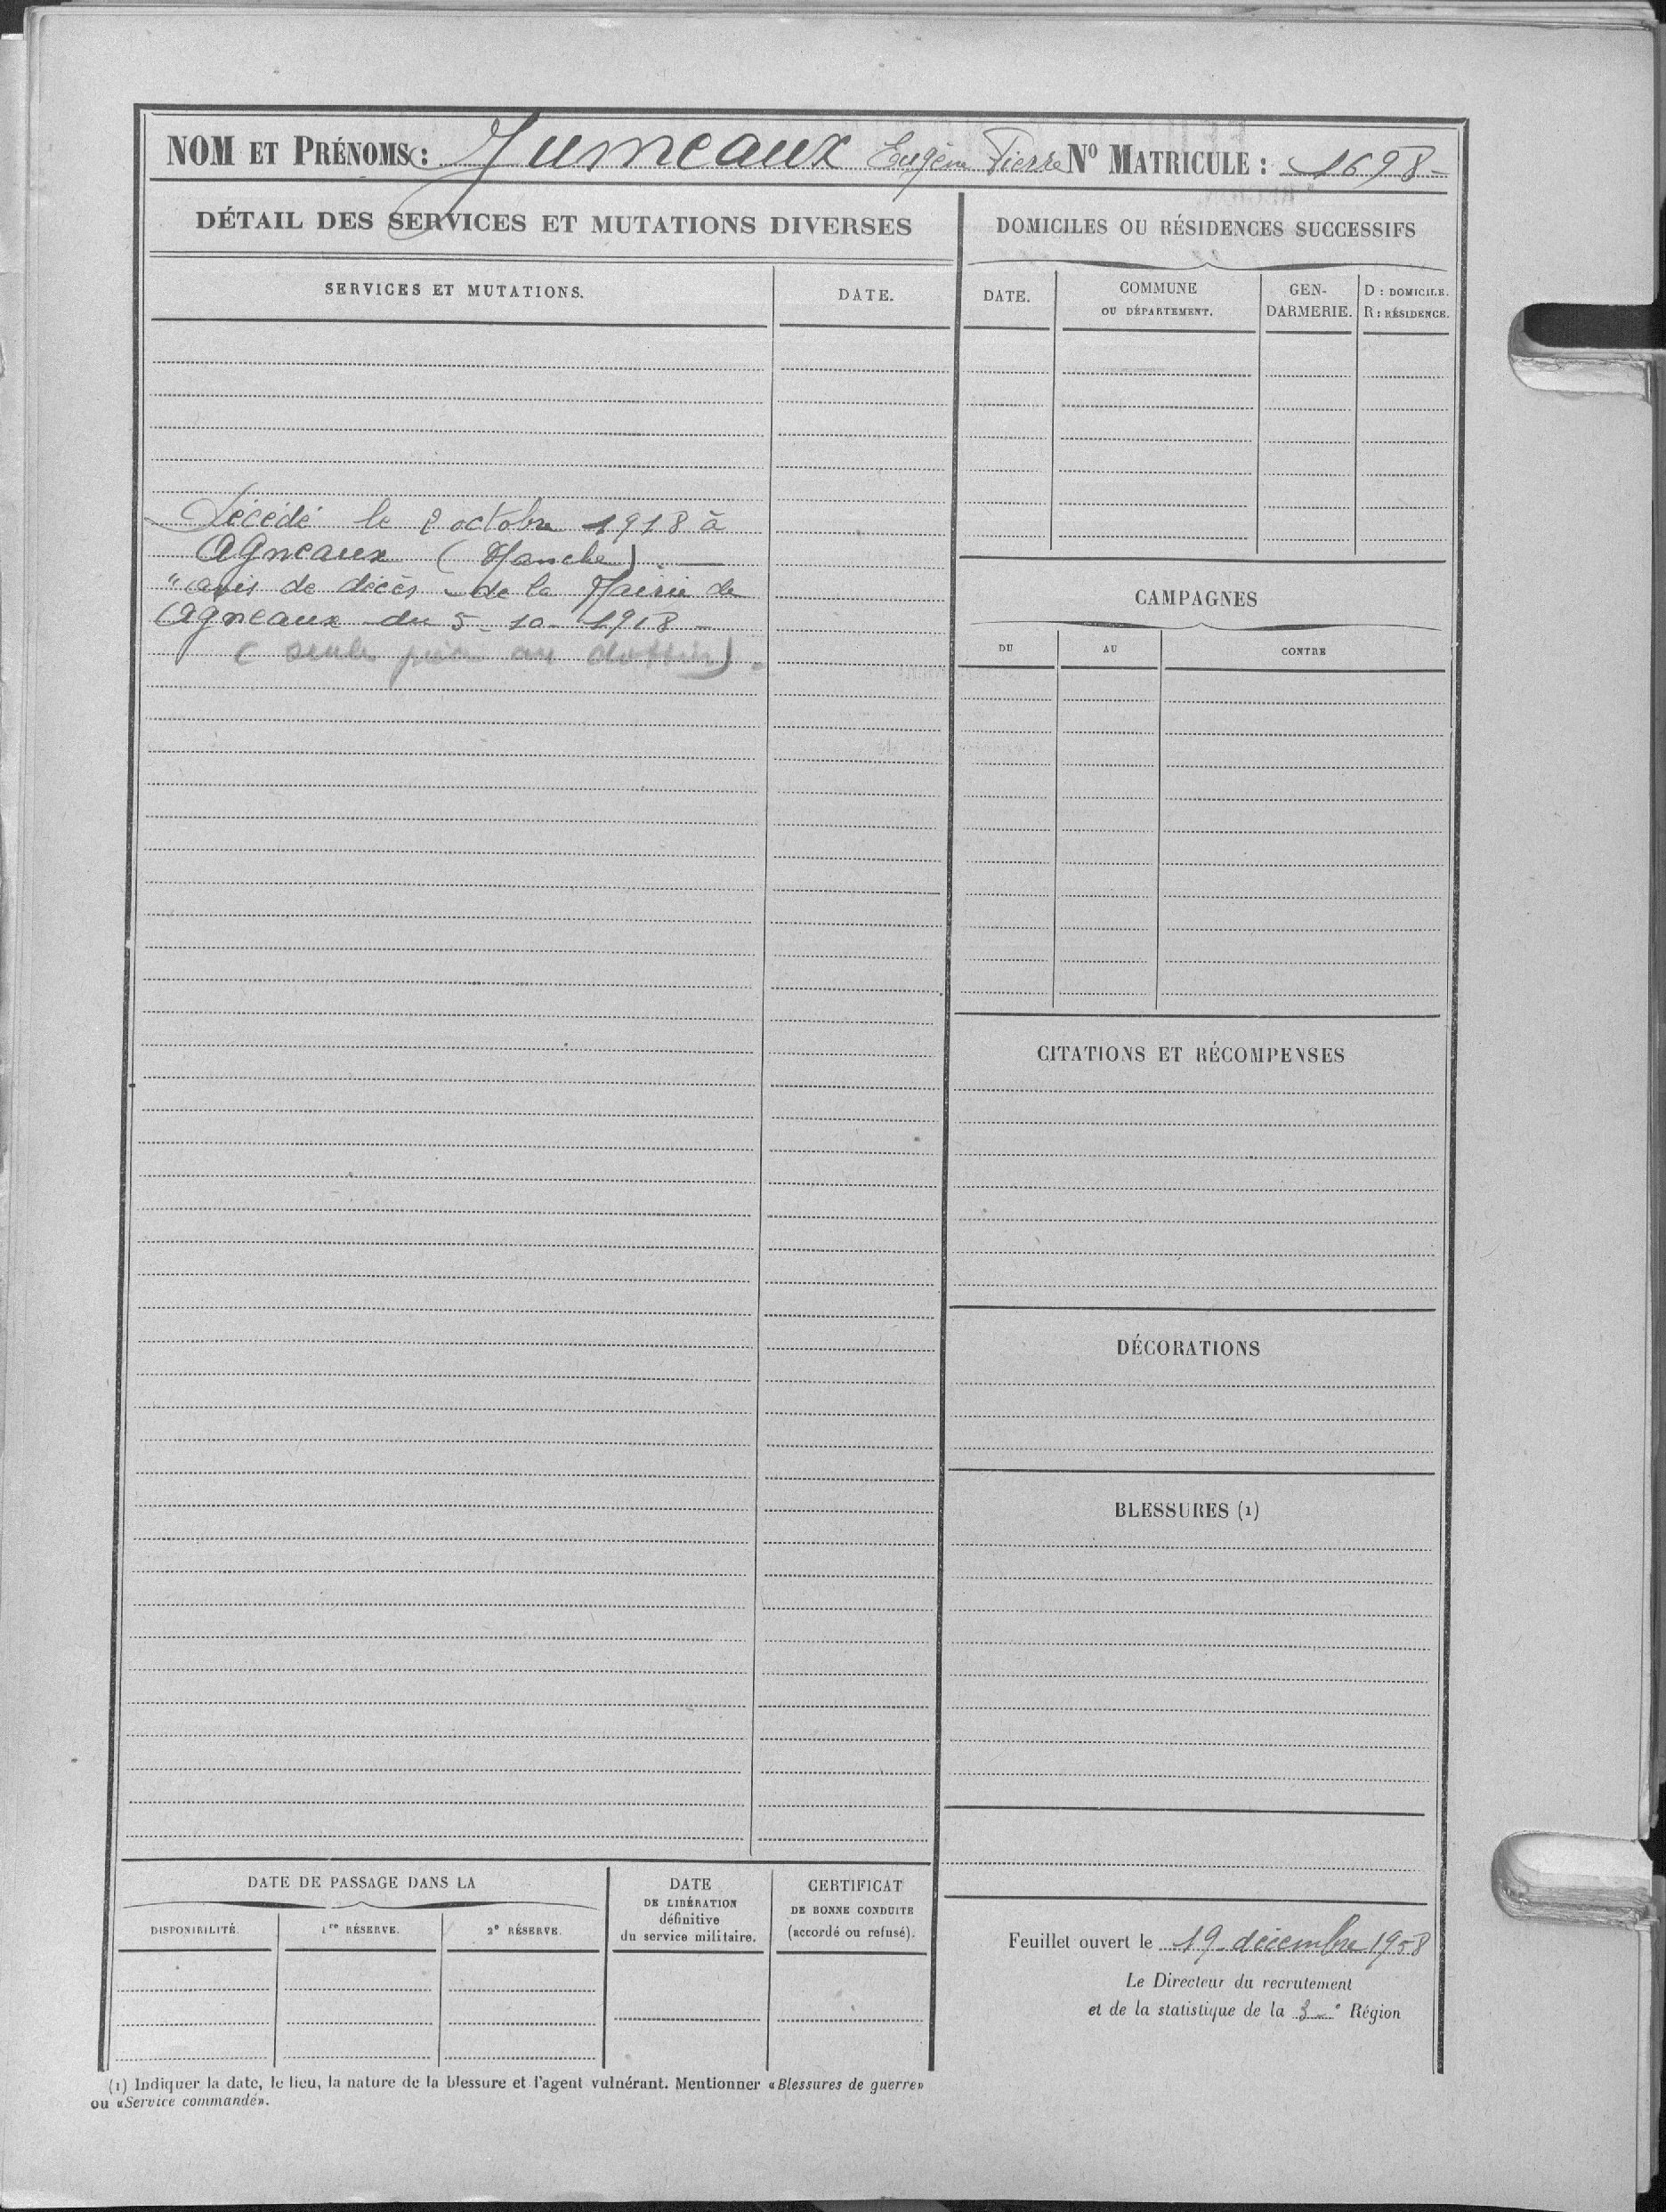 NOM ET PRÉNOMS : Jumeaux Eugène Pierre N° MATRICULE : 1698
DÉTAIL DES SERVICES ET MUTATIONS DIVERSES
SERVICES ET MUTATIONS.
DATE.
Décédé le 2 octobre 1918 à
Agneaux (Manche) —
"avis de décès de la Mairie de
Agneaux du 5-10-1918 -
(seule pièce au dossier).
DOMICILES OU RÉSIDENCES SUCCESSIFS
DATE.
COMMUNE
OU DÉPARTEMENT.
GEN-
DARMERIE.
D : DOMICILE.
R : RÉSIDENCE.
CAMPAGNES
DU
AU
CONTRE
CITATIONS ET RÉCOMPENSES
DÉCORATIONS
BLESSURES (1)
DATE DE PASSAGE DANS LA
DISPONIBILITÉ.
1re RÉSERVE.
2e RÉSERVE.
DATE
DE LIBÉRATION
définitive
du service militaire.
CERTIFICAT
DE BONNE CONDUITE
(accordé ou refusé).
Feuillet ouvert le 19 décembre 1958
Le Directeur du recrutement
et de la statistique de la 3e Région
(1) Indiquer la date, le lieu, la nature de la blessure et l'agent vulnérant. Mentionner «Blessures de guerre»
ou «Service commandé».